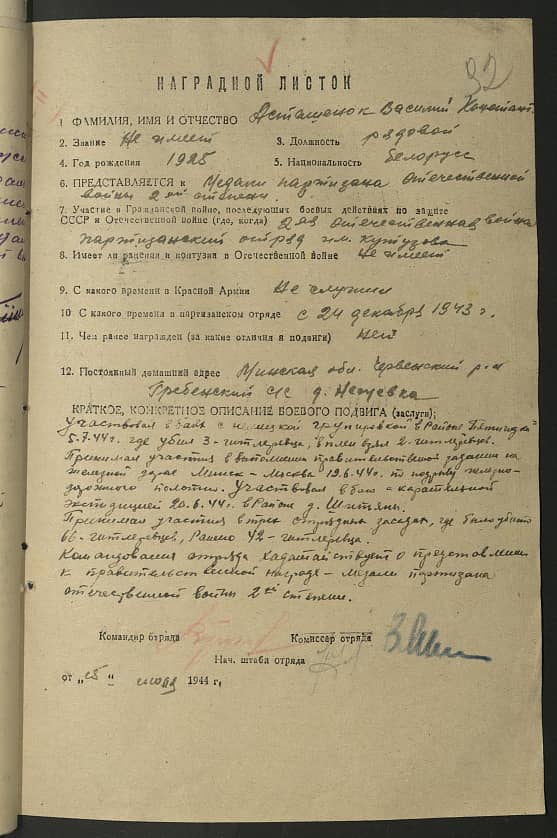 32
НАГРАДНОЙ ЛИСТОК
1 ФАМИЛИЯ, ИМЯ И ОТЧЕСТВО Асташенок Василий Констант.
2. Звание Не имеет 3. Должность рядовой
4. Год рождения 1925 5. Национальность белорусс
6. ПРЕДСТАВЛЯЕТСЯ к Медали партизана отечественной
войны 2ой степени.
7. Участие в Гражданской войне, последующих боевых действиях по защите
СССР и Отечественной войне (где, когда) 2ая отечественная война
партизанский отряд им. Кутузова
8. Имеет ли ранения и контузии в Отечественной войне Не имеет
9. С какого времени в Красной Армии Не служил
10 С какого времени в партизанском отряде с 24 декабря 1943 г.
11. Чем ранее награжден (за какие отличия и подвиги) нет
12. Постоянный домашний адрес Минская обл. Червенский р-н
Гребенский с/с д.
КРАТКОЕ, КОНКРЕТНОЕ ОПИСАНИЕ БОЕВОГО ПОДВИГА (заслуги):
Участвовал в боях с немецкой групировкой в районе
5.7.44г. где убил 3-гитлеровца, в плен взял 2-гитлеровцев.
Принимал участия в выполнении правительственной задании на
железной дороге Минск-Москва 19.6.44г. по подрыву железно-
дорожного полотна. Участвовал в бою с карательной
экспедицией 20.6.44г. в районе д.
Принимал участия в трех отрядных засадах, где было убито
66-гитлеровцев, Ранено 42-гитлеровца.
Командования отряда хадатайствует о представлении
к правительственной награде - медали партизана
отечественной войны 2ой степени.
Командир отряда Комиссар отряда
Нач. штаба отряда
от „15" июля 1944 г.